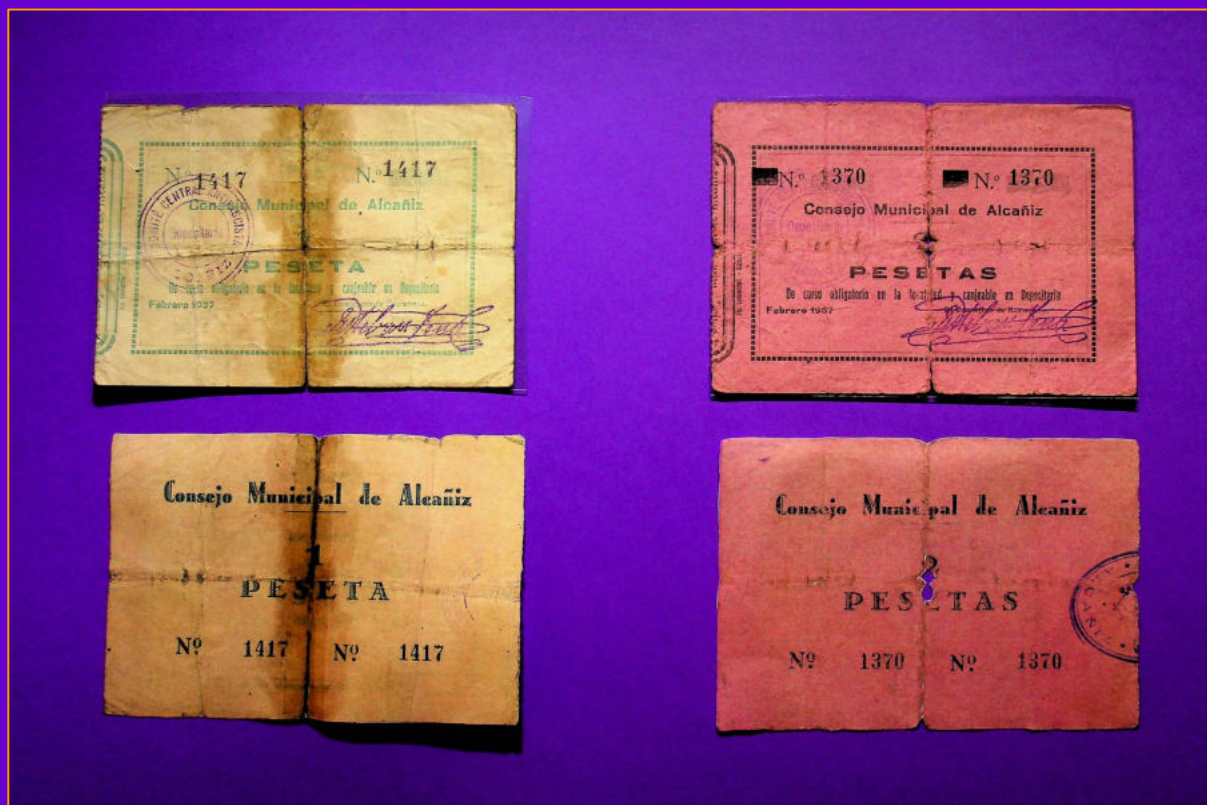 N.º 1417 N.º 1417
Consejo Municipal de Alcañiz
COMITÉ CENTRAL
Depositaria
PESETA
De curso obligatorio en la localidad y canjeable en Depositaria
Febrero 1937
N.º 1370 N.º 1370
Consejo Municipal de Alcañiz
PESETAS
De curso obligatorio en la localidad y canjeable en Depositaria
Febrero 1937
Consejo Municipal de Alcañiz
1
PESETA
Nº 1417 Nº 1417
Consejo Municipal de Alcañiz
2
PESETAS
Nº 1370 Nº 1370